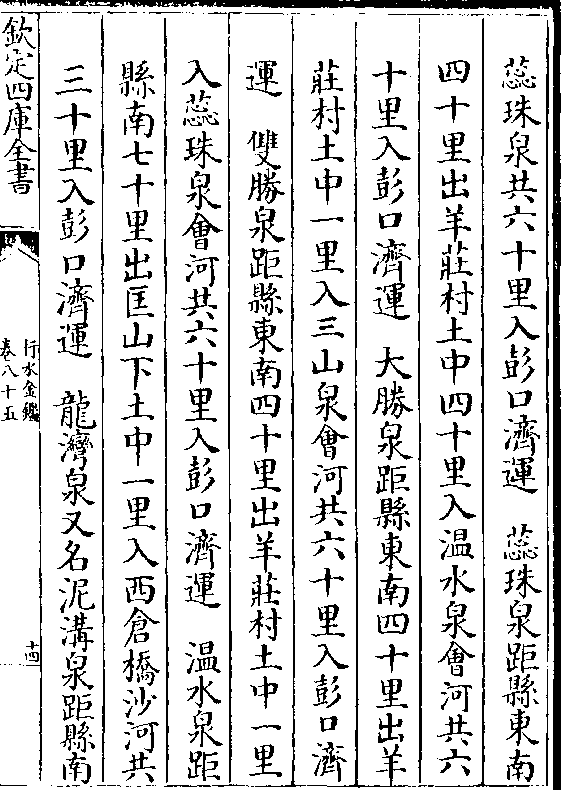 蕊珠泉共六十里入彭口濟運　蕊珠泉距縣東南
四十里出羊莊村土中四十里入温水泉會河共六
十里入彭口濟運　大勝泉距縣東南四十里出羊
莊村土中一里入三山泉會河共六十里入彭口濟
運　雙勝泉距縣東南四十里出羊莊村土中一里
入蕊珠泉會河共六十里入彭口濟運　温水泉距
縣南七十里出匡山下土中一里入西倉橋沙河共
三十里入彭口濟運　龍灣泉又名泥溝泉距縣南
欽定四庫全書
行水金鑑
卷八十五
十四